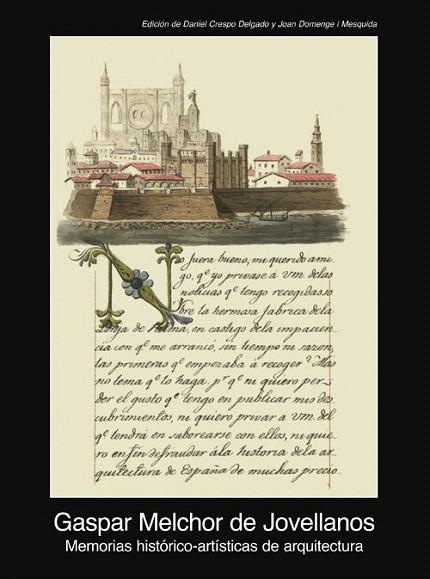 Edición de Daniel Crespo Delgado y Joan Domenge i Mesquida
No fuera bueno, mi querido ami-
go, qe yo privase á vm. delas
noticias qe tengo recogidas so
bre la hermosa fabrica dela
Lonja de Palma, en castigo dela impacien-
cia con qe me arrancó, sin tiempo ni sazon,
las primeras qe empezaba á recoger? Mas
no tema qe lo haga, pr qe ni quiero per-
der el gusto qe tengo en publicar mis des
cubrimientos, ni quiero privar a vm. del
qe tendrá en saborearse con ellos, ni quie-
ro en fin defraudar á la historia dela ar-
quitectura de España de muchas precio
Gaspar Melchor de Jovellanos
Memorias histórico-artísticas de arquitectura